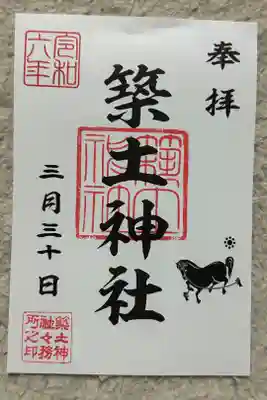 奉拝
築土神社
令和
六年
三月三十日
築土神
社々務
所之印